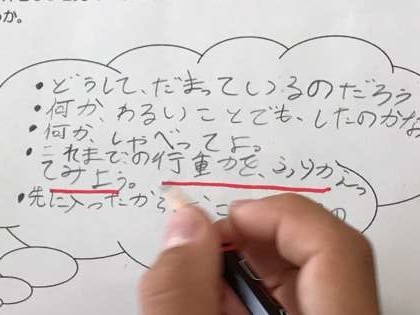 か。
・どうして、だまっているのだろう
・何か、わるいことでも、したのかな
・何か、しゃべってよ。
・これまでの行動を、ふりかえっ
てみよう。
・先に入ったから、